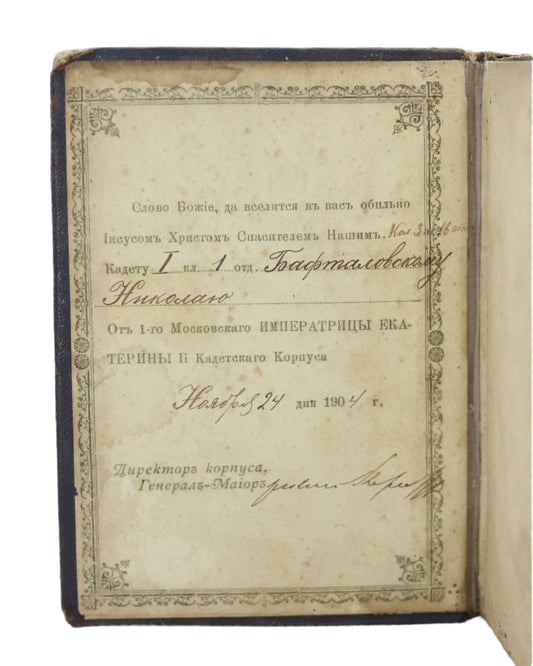 Слово Божіе, да вселится въ васъ обильно
Іисусомъ Христомъ Спасителемъ Нашимъ. Кол 3 гл 16 ст
Кадету I кл. 1 отд. Бафталовскому
Николаю
Отъ 1-го Московскаго ИМПЕРАТРИЦЫ ЕКА-
ТЕРИНЫ II Кадетскаго Корпуса
Ноября 24 дня 1904 г.
Директоръ корпуса,
Генералъ-Маіоръ